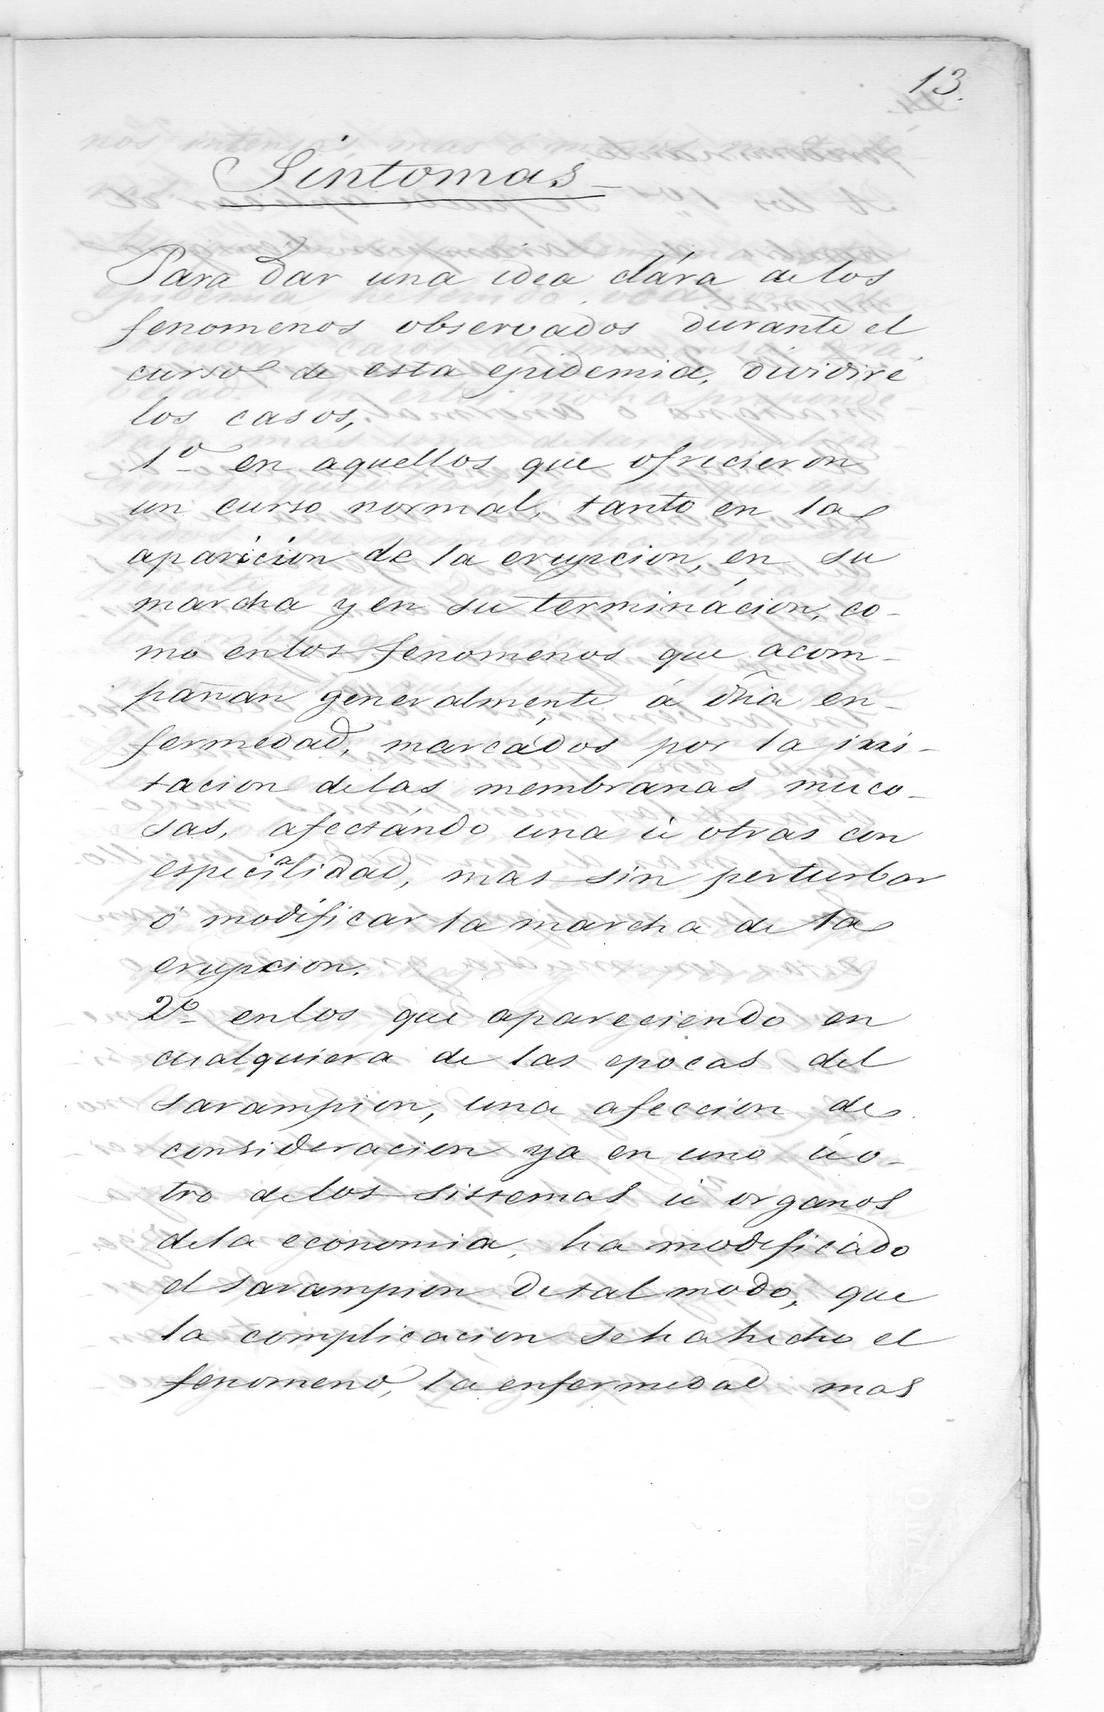 13.
Sintomas
Para dar una idea clára de los
fenomenos observádos durante el
curso de esta epidemia, dividiré
los casos,
1º en aquellos que ofrecieron
un curso normal, tanto en la
aparicion de la erupcion, en su
marcha y en su termináción, co-
mo en los fenomenos que acom-
pañan generalmente á dha en-
fermedad, marcádos por la irri-
tacion de las membranas muco-
sas, afectándo una ú otras con
especialidad, mas sin perturbar
ó modificar la marcha de la
erupcion.
2º en los que apareciendo en
cualquiera de las epocas del
sarampion, una afeccion de
consideracion ya en uno ú o-
tro de los sistemas ú organos
de la economia, ha modificádo
el sarampion de tal modo, que
la complicacion se ha hecho el
fenomeno, la enfermedad mas